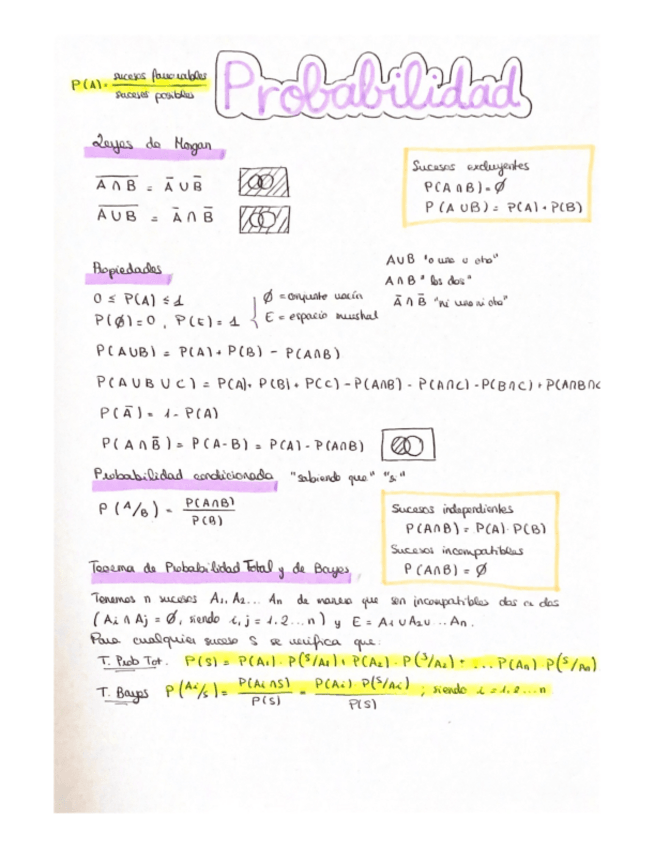 P(A) = sucesos favorables / sucesos posibles
Probabilidad
Leyes de Morgan
A̅ ̅∩̅ ̅B̅ = A̅ ∪ B̅
A̅ ̅∪̅ ̅B̅ = A̅ ∩ B̅
Sucesos excluyentes
P(A∩B) = Ø
P(A∪B) = P(A) + P(B)
A∪B "o uno u otro"
A∩B "los dos"
A̅∩B̅ "ni uno ni otro"
Propiedades
0 ≤ P(A) ≤ 1
P(Ø) = 0, P(E) = 1
Ø = conjunto vacío
E = espacio muestral
P(A∪B) = P(A) + P(B) - P(A∩B)
P(A∪B∪C) = P(A) + P(B) + P(C) - P(A∩B) - P(A∩C) - P(B∩C) + P(A∩B∩C
P(A̅) = 1 - P(A)
P(A∩B̅) = P(A-B) = P(A) - P(A∩B)
Probabilidad condicionada "sabiendo que" "si"
P(A/B) = P(A∩B) / P(B)
Sucesos independientes
P(A∩B) = P(A)·P(B)
Sucesos incompatibles
P(A∩B) = Ø
Teorema de Probabilidad Total y de Bayes
Tenemos n sucesos A₁, A₂... An de manera que son incompatibles dos a dos
(Ai ∩ Aj = Ø, siendo i, j = 1, 2... n) y E = A₁∪A₂∪...An.
Para cualquier suceso S se verifica que:
T. Prob Tot. P(S) = P(A₁)·P(S/A₁) + P(A₂)·P(S/A₂) + ... P(An)·P(S/An)
T. Bayes P(Ai/S) = P(Ai∩S) / P(S) = P(Ai)·P(S/Ai) / P(S) ; siendo i = 1, 2... n